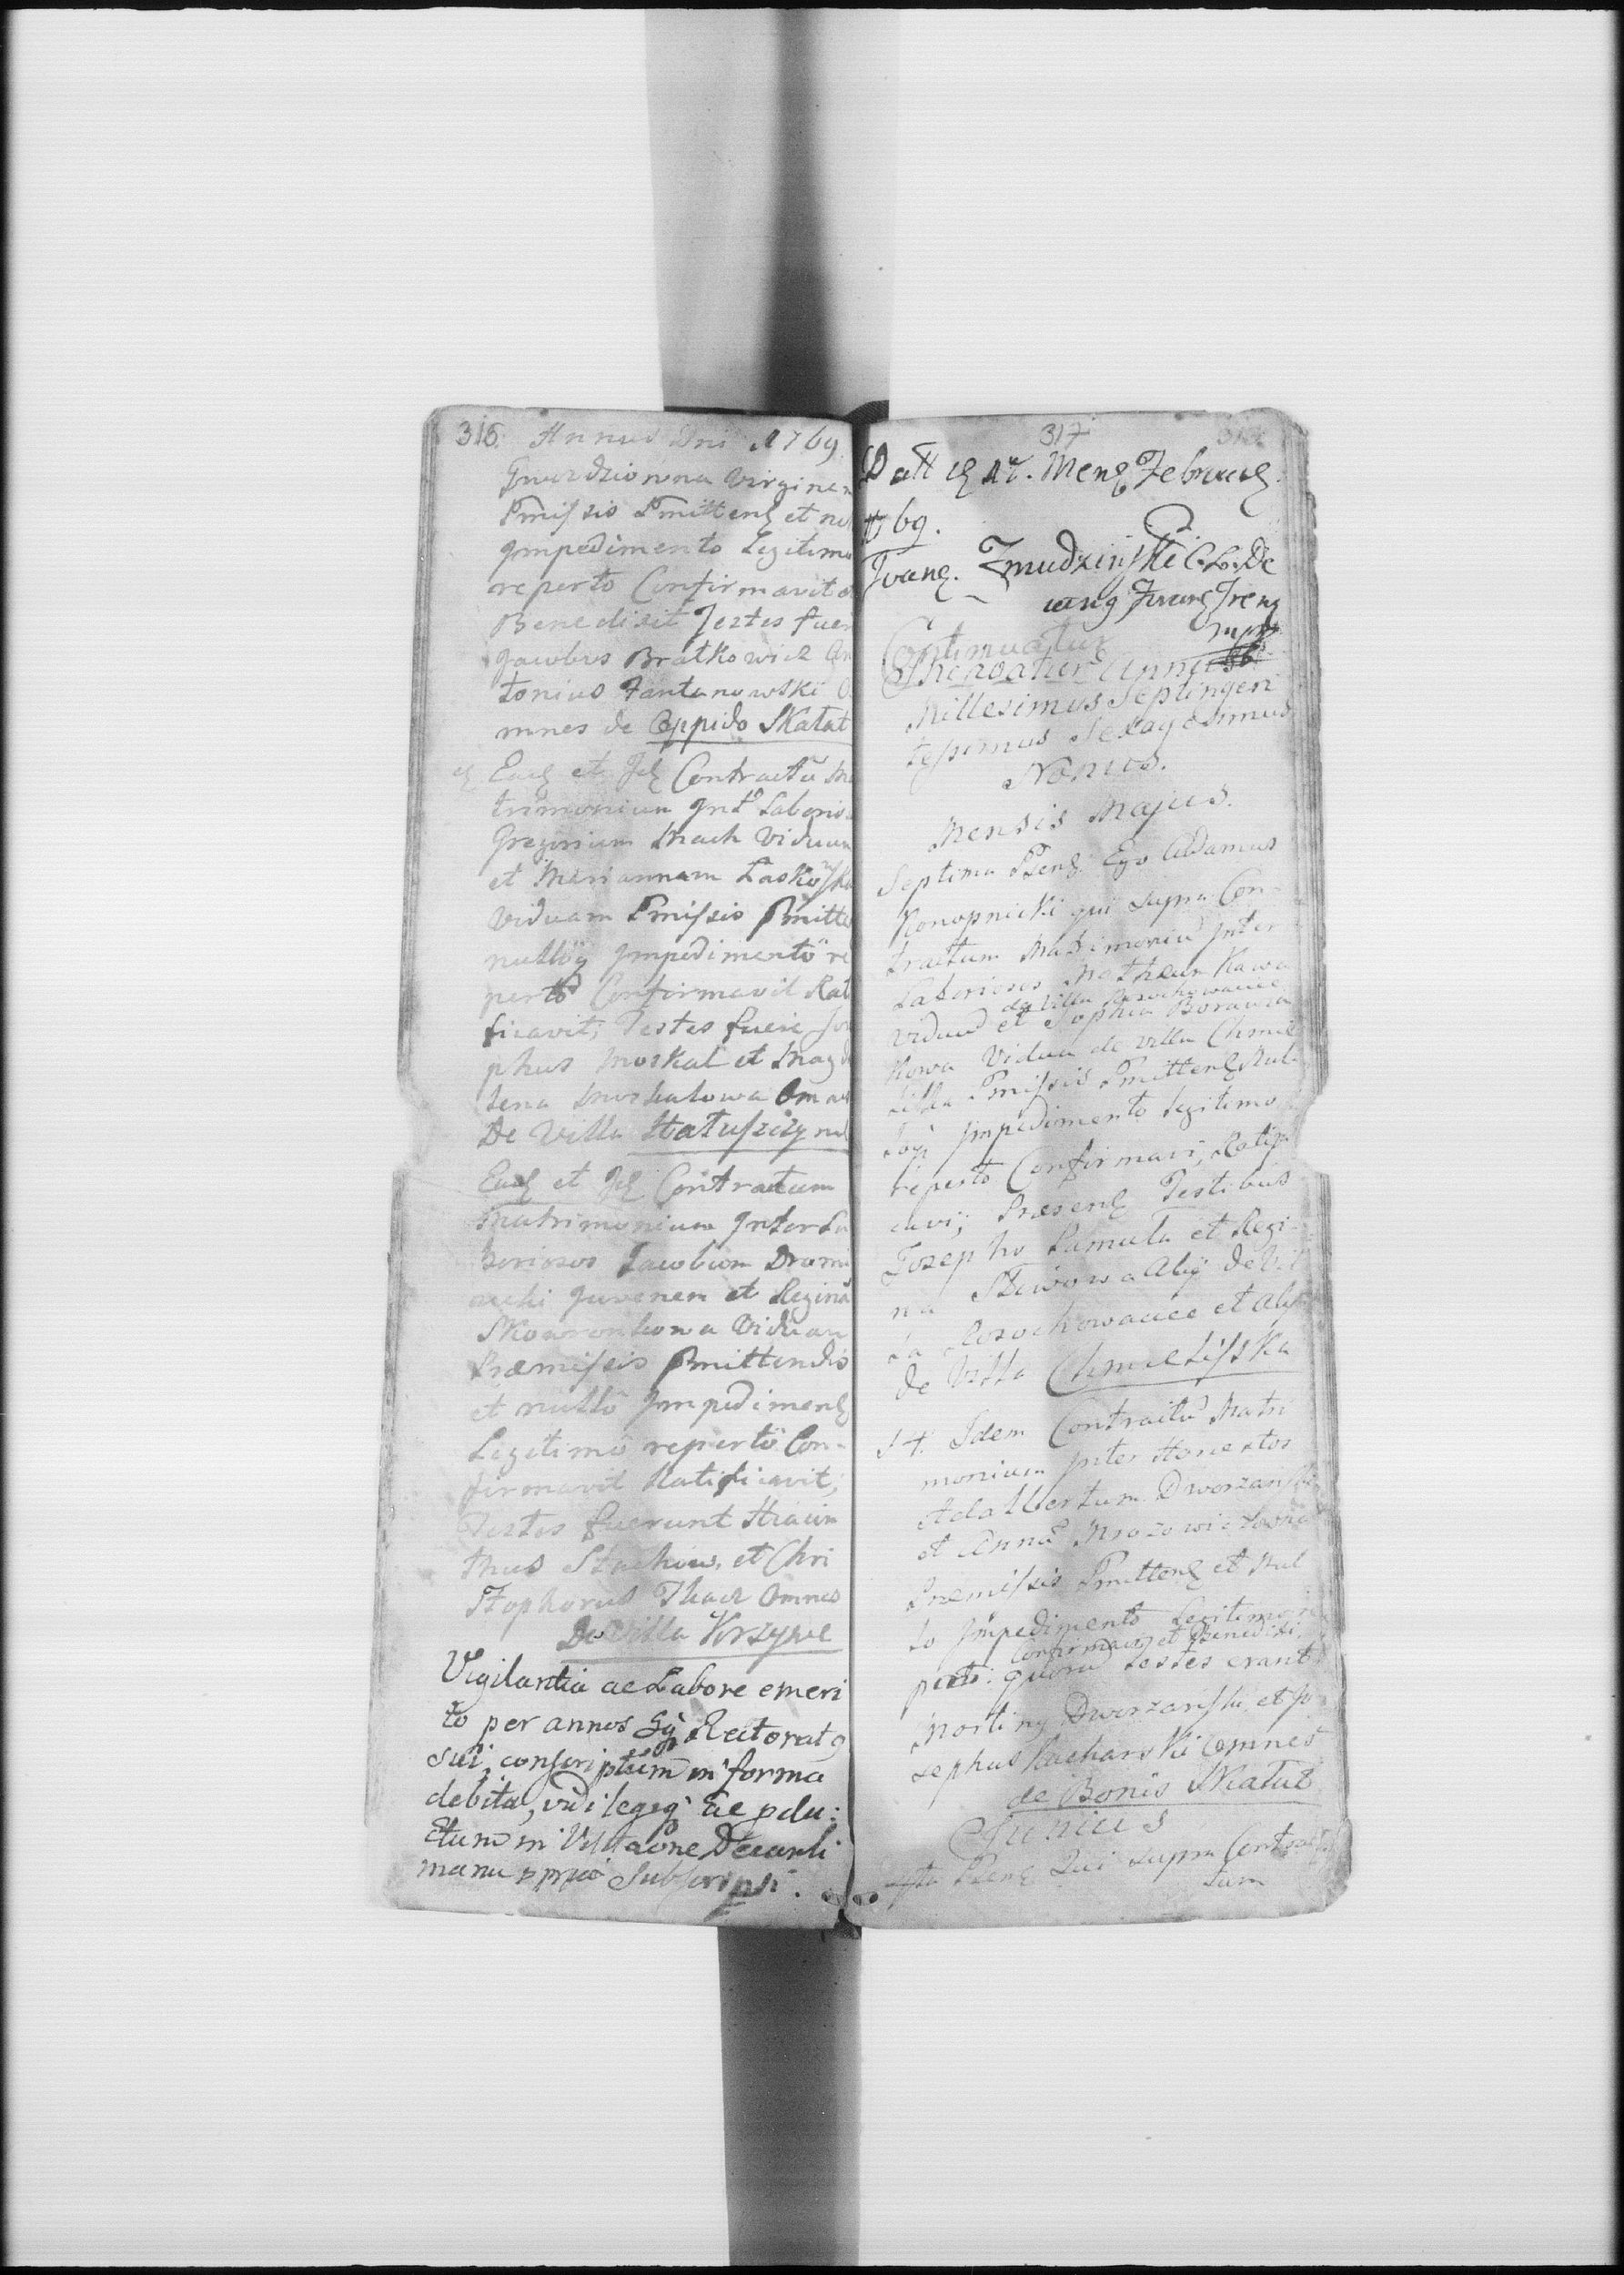 316. Annus Dni 1769
Gwozdzionna Virginem
Pmissis Pmittend et nul
Impedimento Legitimo
reperto Confirmavit et
Benedixit Testes fuer
Jacobus Bratkowicz An
tonius Fantanowski O
mnes de Oppido Skałat
Ead et Id Contractū Ma
trimonium Intr Laborios
Gregorium Mach Viduum
et Mariannam Laskowska
Viduam Pmissis Pmitte
nullōq Impedimentō re
pertō Confirmavit Rat
ficavit, Testes fuere Jos
phus Moskal et Magd
lena Moskalowa Omnes
De Villa Hałuszczyn
Ead et Id Contractum
Matrimonium Inter La
boriosos Jacobum
Juvenem et Reginā
Skowronkowa Viduam
Præmissis Pmittendis
et nullō Impediment
Legitimō repertō Con-
firmavit Ratificavit;
Testes fuerunt Hiacin
thus Stachiw, et Chri
stophorus Tkacz Omnes
De Villa Krzywe
Vigilantia ac Labore emeri
to per annos Rectoratq
sui, conscriptum in forma
debita, vidi legiq ac pdu:
ctum in Visitaone Decanli
manu ppria Subscripsi.
317
Datt Mens Februar
69.
Franc. Zmudzinski
Continuatur
Annus
Millesimus Septingen
tesimus Sexagesimus
Nonus.
Mensis Majus.
Septima Psens Ego Adamus
Konopnicki qui supra Con-
tractum Matrimoniū Inter
Laboriosos Matheum Kawa
de Villa Rosochowaciec
viduū et Sophia
kowa Vidua de villa Chmie
liska Pmissis Pmittend Nul-
loq Impedimento Legitimo
reperto Confirmavi, Ratifi
cavi; Præsent Testibus
Josepho Pamuła et Regi-
na Aliis de Vil
la Rosochowaciec et aliis
de Villa Chmieliska
Idem Contraxitū Matri
monium Inter Honestos
Adalbertum Dworzanski
et Annā Mrozowictowna
Premissis Pmittend et Nul
lo Impedimento Legitimo re
Confirmavi et Benedixi,
perto: quorū testes erant
Martinq Dworzanski et Jo
sephus Kucharski omnes
de Bonis Skałat
Junius
Psens Qui supra Contrac
tum